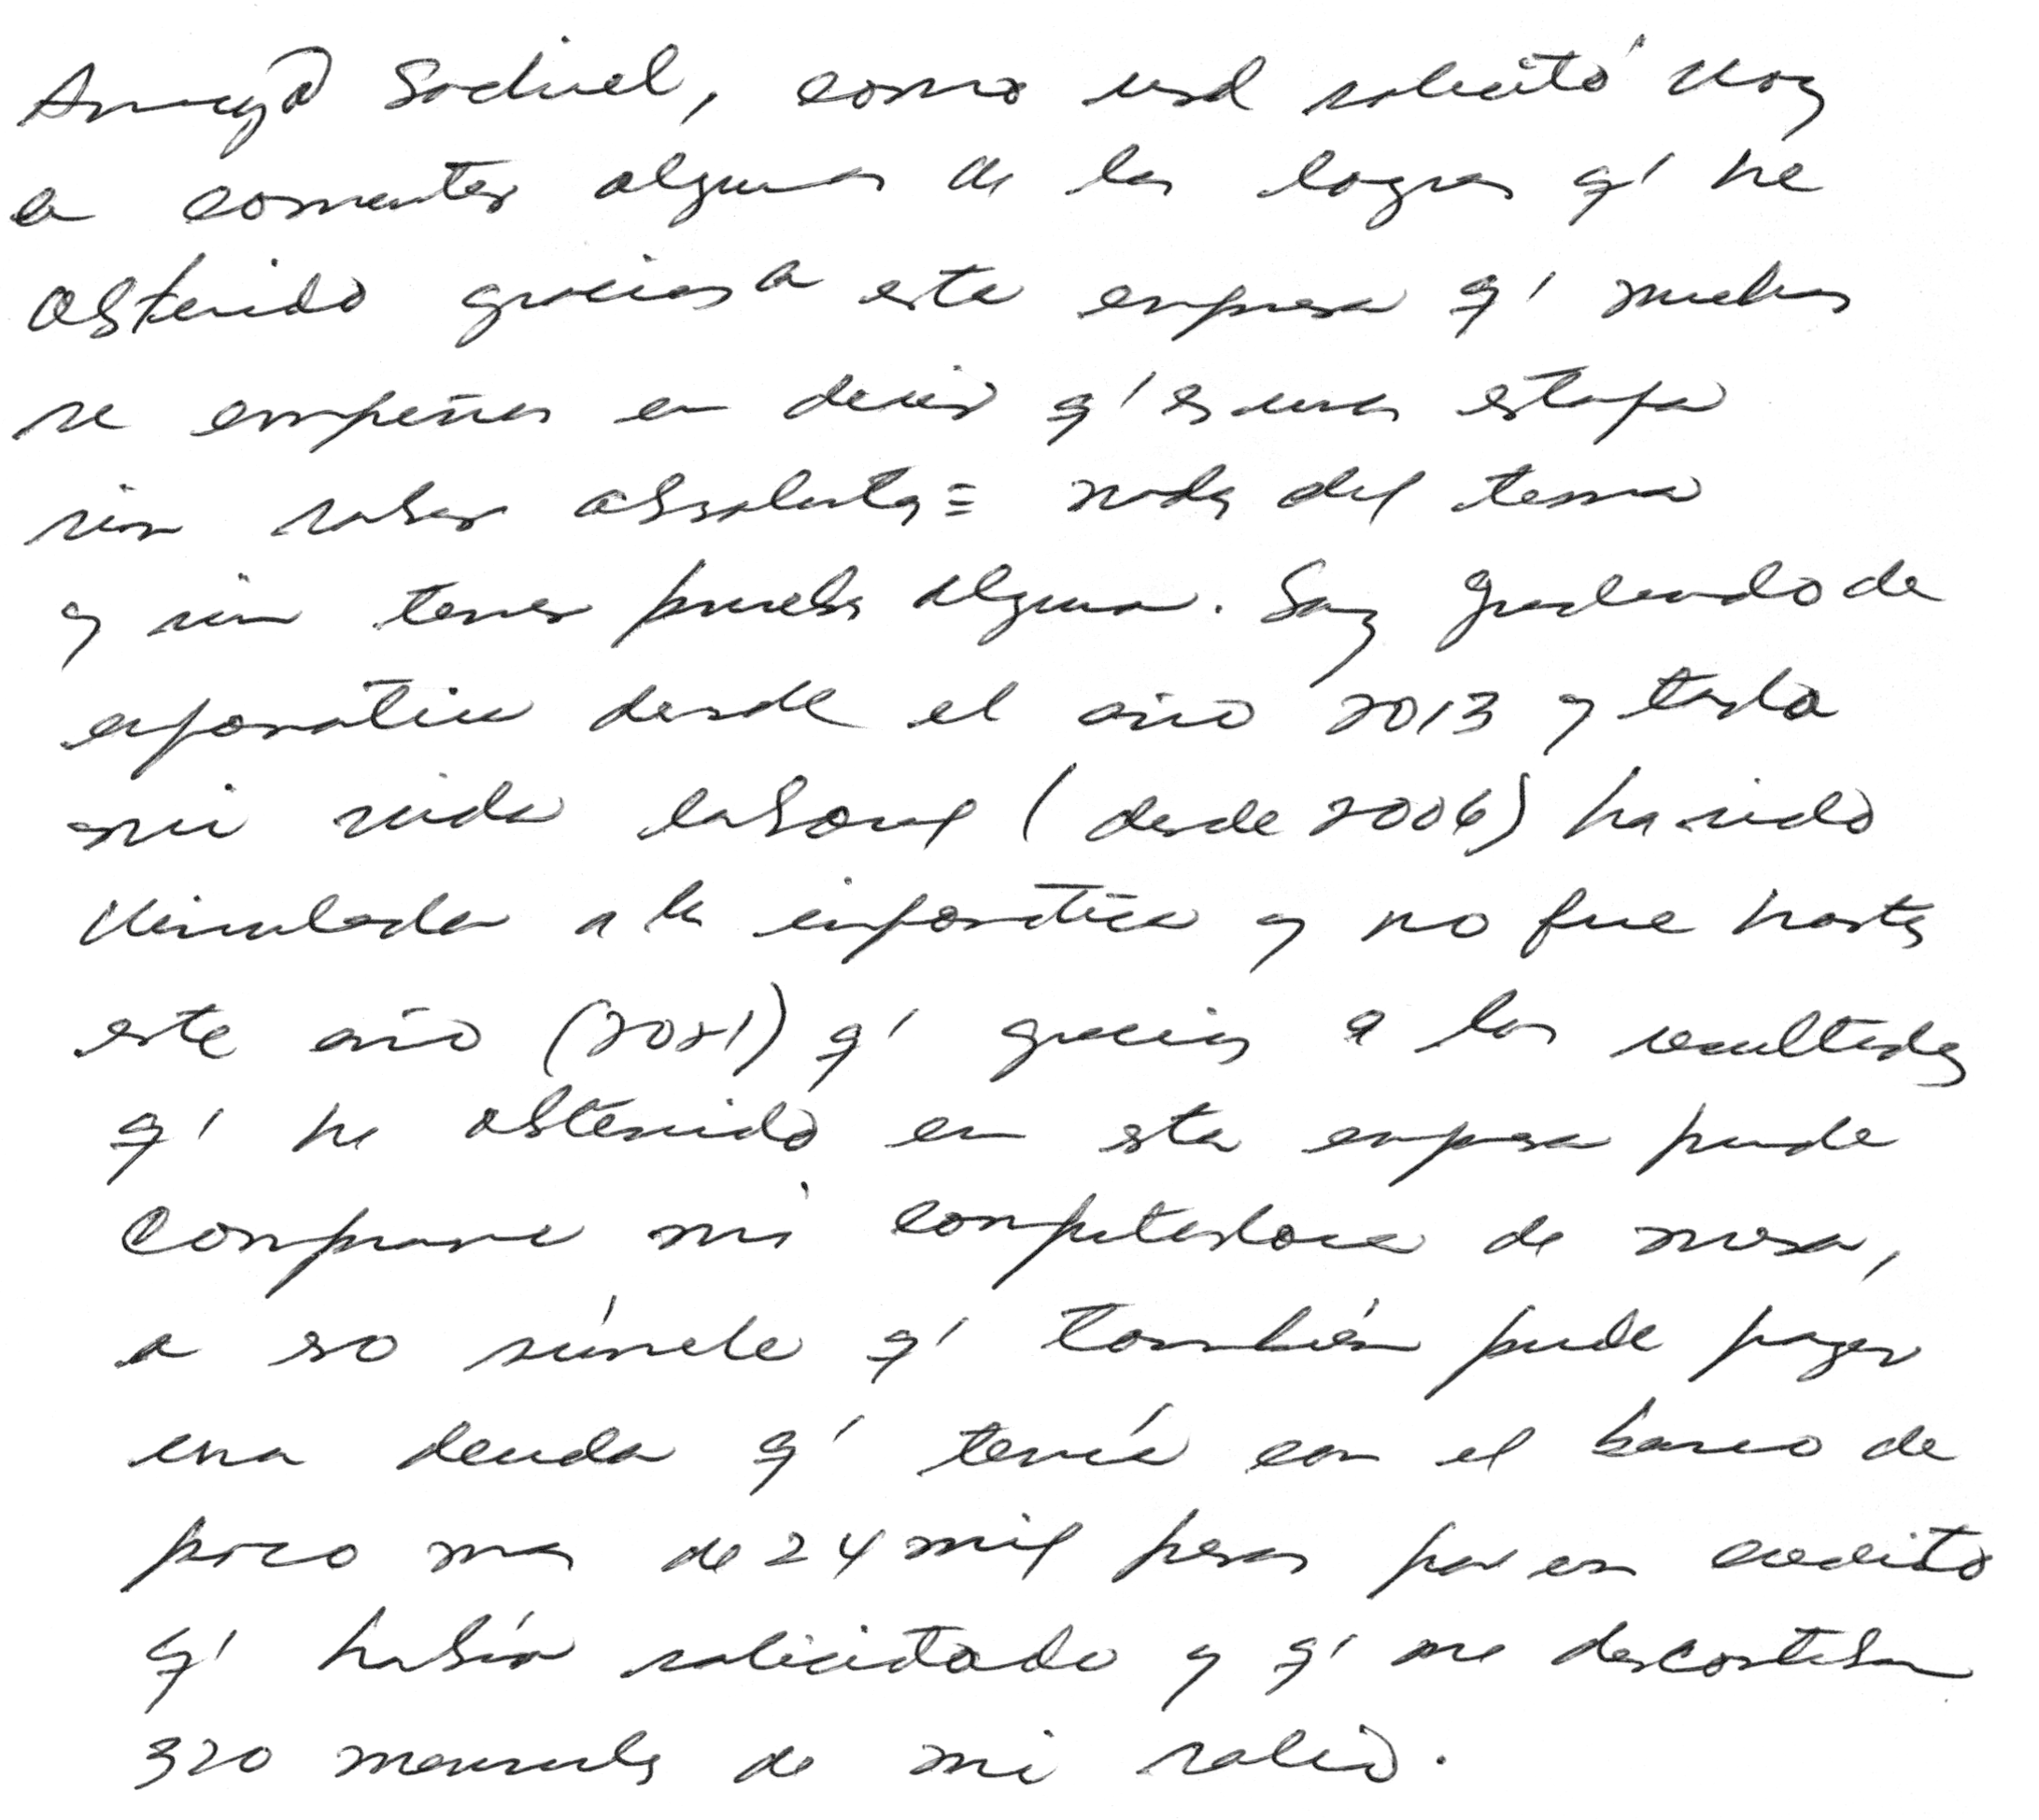 Amig@ Sadiel, como usd solicitó voy
a comentar algunos de los logros q' he
obtenido gracias a esta empresa q' muchos
se empeñan en decir q' es una estafa
sin saber absoluta= nada del tema
y sin tener prueba alguna. Soy graduado de
informática desde el año 2013 y toda
mi vida laboral (desde 2006) ha sido
vinculada a la informática y no fue hasta
este año (2021) q' gracias a los resultados
q' he obtenido en esta empresa pude
comprarme mi computadora de mesa,
a eso súmele q' también pude pagar
una deuda q' tenía con el banco de
poco mas de 24 mil pesos por un credito
q' había solicitado y q' me descontaban
320 mensuales de mi salario.